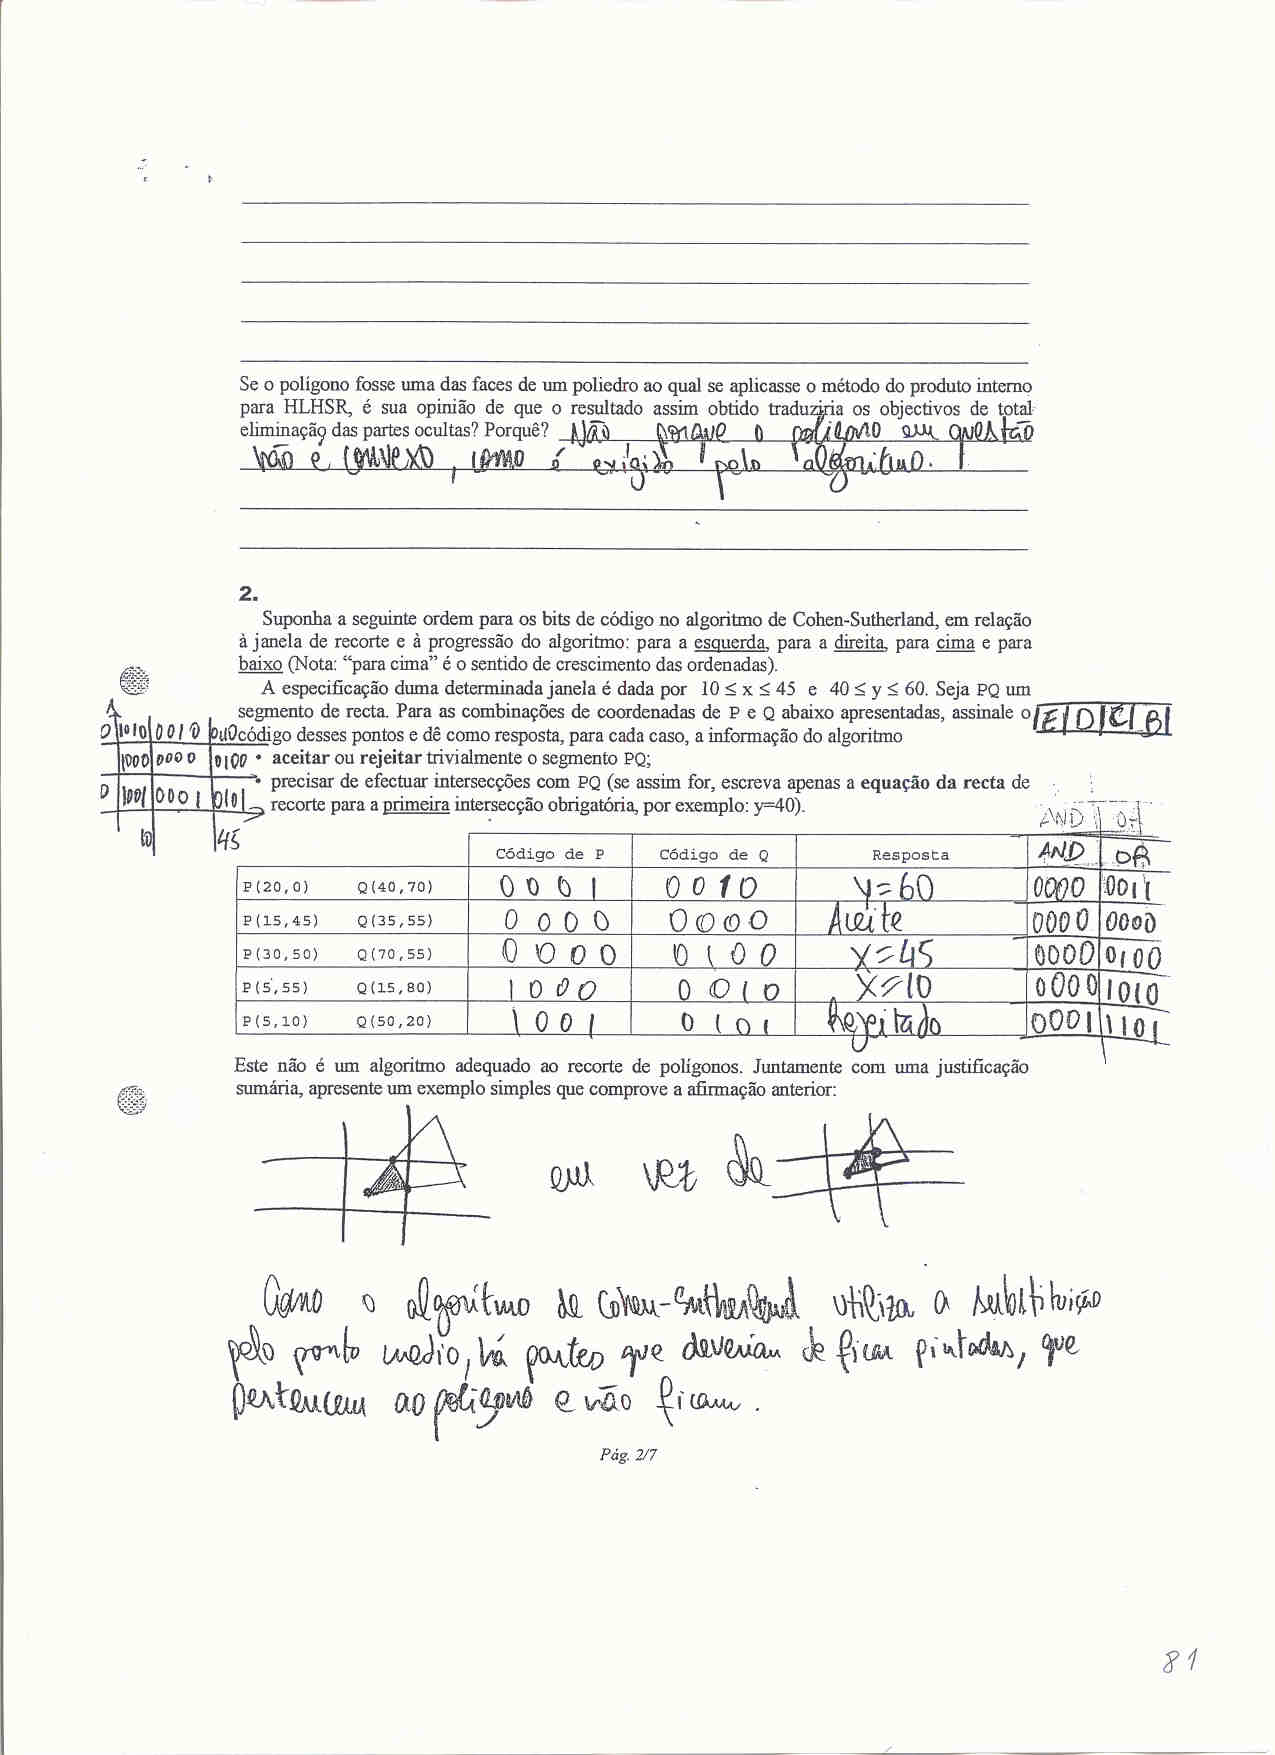 Se o polígono fosse uma das faces de um poliedro ao qual se aplicasse o método do produto interno
para HLHSR, é sua opinião de que o resultado assim obtido traduziria os objectivos de total
eliminação das partes ocultas? Porquê? Não porque o polígono em questão
não é convexo, como é exigido pelo algoritmo.
2.
Suponha a seguinte ordem para os bits de código no algoritmo de Cohen-Sutherland, em relação
à janela de recorte e à progressão do algoritmo: para a esquerda, para a direita, para cima e para
baixo (Nota: “para cima” é o sentido de crescimento das ordenadas).
A especificação duma determinada janela é dada por 10 ≤ x ≤ 45 e 40 ≤ y ≤ 60. Seja PQ um
segmento de recta. Para as combinações de coordenadas de P e Q abaixo apresentadas, assinale o
E D C B
código desses pontos e dê como resposta, para cada caso, a informação do algoritmo
1010 0010
• aceitar ou rejeitar trivialmente o segmento PQ;
1000 0000 0100
• precisar de efectuar intersecções com PQ (se assim for, escreva apenas a equação da recta de
1001 0001 0101
recorte para a primeira intersecção obrigatória, por exemplo: y=40).
10 45
Código de P Código de Q Resposta AND OR
P(20,0) Q(40,70) 0001 0010 y=60 0000 0011
P(15,45) Q(35,55) 0000 0000 Aceite 0000 0000
P(30,50) Q(70,55) 0000 0100 X=45 0000 0100
P(5,55) Q(15,80) 1000 0010 X=10 0000 1010
P(5,10) Q(50,20) 1001 0101 Rejeitado 0001 1101
Este não é um algoritmo adequado ao recorte de polígonos. Juntamente com uma justificação
sumária, apresente um exemplo simples que comprove a afirmação anterior:
em vez de
Como o algoritmo de Cohen-Sutherland utiliza a substituição
pelo ponto medio, há partes que deveriam de ficar pintadas, que
pertencem ao poligono e não ficam.
Pág. 2/7
81